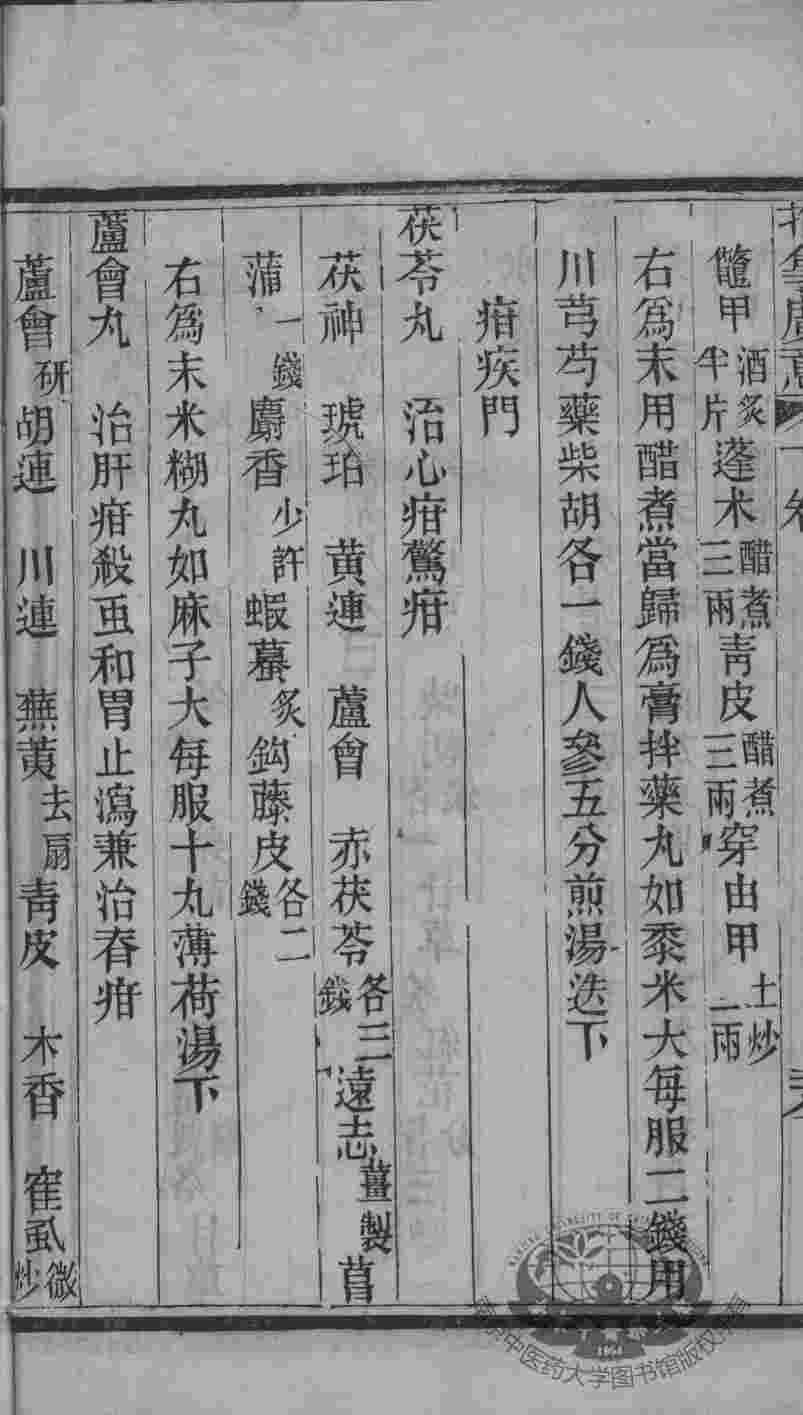 鼈甲酒炙半片蓬术醋煮三兩青皮醋煮三兩穿由甲土炒一兩
右為末用醋煮當歸為膏拌藥丸如黍米大每服二錢用
川芎芍藥柴胡各一錢人參五分煎湯送下
疳疾門
茯苓丸 治心疳驚疳
茯神 琥珀 黃連 蘆曾 赤茯苓各三錢遠志薑製菖
蒲一錢麝香少許蝦蟇炙鈎藤皮各二錢
右為末米糊丸如麻子大每服十丸薄荷湯下
蘆會丸 治肝疳殺虫和胃止瀉兼治脊疳
蘆會研胡連 川連 蕪荑去扇青皮 木香 崔虱微炒
南京中医药大学图书馆版权所有